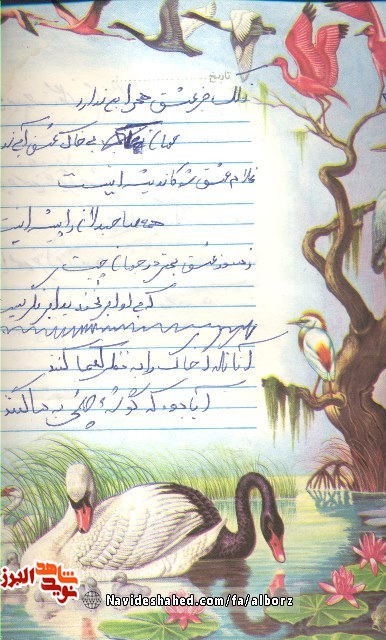 تاریخ
فلک جز عشق محرابی ندارد
جهان بی خاک عشق آبی ندا
غلام عشق شو کاندیشه اینست
همه صاحبدلان را پیشه اینست
ز سوز عشق بهتر در جهان چیست
که بی او گل نخندید ابر نگریست
آنانکه خاک را به نظر کیمیا کنند
آیا بود که گوشه چشمی به ما کنند
نوید شاهد البرز
Navideshahed.com/fa/alborz